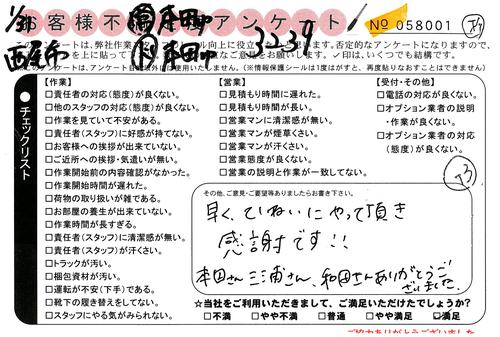 お客様不満足アンケート
No 058001
1/31
西尾市
本田
本田
3-2-29
このアンケートは、弊社作業
否定的なアンケートになりますので、
✓印は、いくつでも結構です。
(※情報保護シールは1度がすと、再度貼りなおすことはできません)
チェックリスト
【作業】
□責任者の対応(態度)が良くない。
□他のスタッフの対応(態度)が良くない。
□作業を見ていて不安がある。
□責任者(スタッフ)に好感が持てない。
□お客様への挨拶が出来ていない。
□ご近所への挨拶・気遣いが無い。
□作業開始前の内容確認がなかった。
□作業開始時間が遅れた。
□荷物の取り扱いが雑である。
□お部屋の養生が出来ていない。
□作業時間が長すぎる。
□責任者(スタッフ)に清潔感が無い。
□責任者(スタッフ)が汗くさい。
□トラックが汚い。
□梱包資材が汚い。
□運転が不安(下手)である。
□靴下の履き替えをしてない。
□スタッフにやる気がみられない。
【営業】
□見積もり時間に遅れた。
□見積もり時間が長い。
□営業マンに清潔感が無い。
□営業マンが煙草くさい。
□営業マンが汗くさい。
□営業態度が良くない。
□営業の説明と作業が一致してない。
【受付・その他】
□電話の対応が良くない。
□オプション業者の説明
・作業が良くない。
□オプション業者の対応
(態度)が良くない。
その他、ご意見・ご要望等ありましたらお書き下さい。
早く、ていねいにやって頂き
感謝です!!
本田さん 三浦さん、和田さんありがとうご
ざいました。
☆当社をご利用いただきまして、ご満足いただけたでしょうか?
□不満 □やや不満 □普通 □やや満足 ☑満足
ご協力ありがとうございました